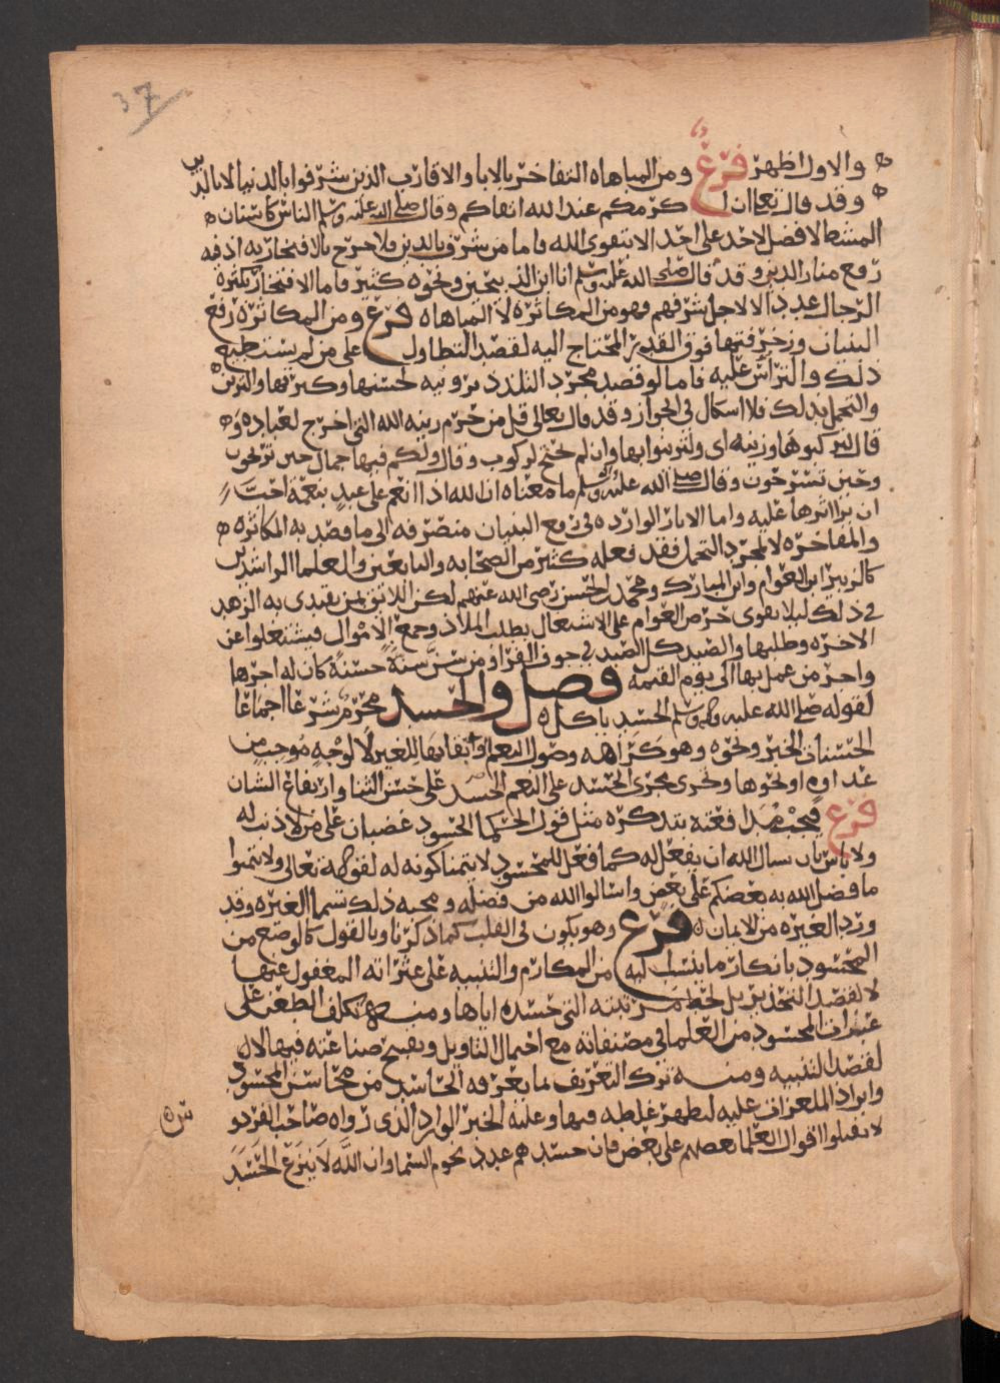 37
والاول اظهر فرع ومن المباهاه التفاخر بالابا والاقارب الذين شرفوا بالدنيا لا بالدين
وقد قال تعالى ان اكرمكم عند الله اتقاكم وقال صلى الله عليه وسلم الناس كاسنان
المشط لا فضل لاحد على احد الا بتقوى الله فاما من شرف بالدين فلا حرج بالافتخار به اذ فيه
رفع منار الدين وقد قال صلى الله عليه وسلم انا ابن الذبيحين ونحوه كثير فاما الافتخار بكثرة
الرجال عددا لا لاجل شرفهم فهو من المكاثره لا المباهاه فرع ومن المكاثره رفع
البنيان وزخرفتها فوق القدر المحتاج اليه لقصد التطاول على من لم يستطيع
ذلك والتراس عليه فاما لو قصد مجرد التلذذ برويه لحسنها وكبرها والتزين
والتجمل بذلك فلا اشكال في الجواز وقد قال تعالى قل من حرم زينه الله التي اخرج لعباده و
قال لتركبوها وزينه اى ولتزينوا بها وان لم تحتج لركوب وقال ولكم فيها جمال حين تريحون
وحين تسرحون وقال صلى الله عليه وسلم ما معناه ان الله اذا انعم على عبد بنعمة احب
ان يرا اثرها عليه واما الاثار الوارده في رفع البنيان منصرفه الى ما قصد به المكاثره
والمفاخره لا لمجرد التجمل فقد فعله كثير من الصحابه والتابعين والعلما الراشدين
كالزبير ابن العوام وابن المبارك ومحمد بن الحسن رضى الله عنهم لكن اللائق بمن يقتدى به الزهد
في ذلك ليلا يقوى حرص العوام على الاشتغال بطلب الملاذ وجمع الاموال فيشتغلوا عن
الاخره وطلبها والصيد كل الصيد في جوف الفرا ومن سن سنة حسنة كان له اجرها
واجر من عمل بها الى يوم القيمه فصل والحسد محرم شرعا اجماعا
لقوله صلى الله عليه واله وسلم الحسد ياكل
الحسنات الخبر ونحوه وهو كراهه وصول النعم او ابقائها للغير لا لوجه موجب من
عداوه او نحوها ويجرى مجرى الحسد على النعم الحسد على حسن الثنا وارتفاع الشان
فرع فيجب مدافعته بتذكره مثل قول الحكما الحسود غضبان على من لا ذنب له
ولا باس بان يسال الله ان يفعل له كما فعل للمحسود لا يتمنا كونه له لقوله تعالى ولا تتمنوا
ما فضل الله به بعضكم على بعض واسالوا الله من فضله ومحبه ذلك تسما الغيره وقد
ورد الغيره من الايمان فرع وهو يكون في القلب كما ذكرنا وبالقول كالوضع من
المحسود بانكار ما ينسب اليه من المكارم والتنبيه على عثراته المغفول عنها
لا لقصد التحذير بل لحط مرتبته التى حسده اياها ومنه تكلف الطعن على
عبارات المحسود من العلما في مصنفاته مع احتمال التاويل وتقبيح صناعته فيها لا
لقصد التنبيه ومنه ترك التعريف بما يعرفه الحاسد من محاسن المحسود
وايراد الملغزات عليه ليظهر غلطه فيها وعليه الخبر الوارد الذى رواه صاحب الفردو
س
لا تقبلوا اقوال العلما بعضهم على بعض فان حسدهم عدد نجوم السما وان الله لا ينزع الحسد